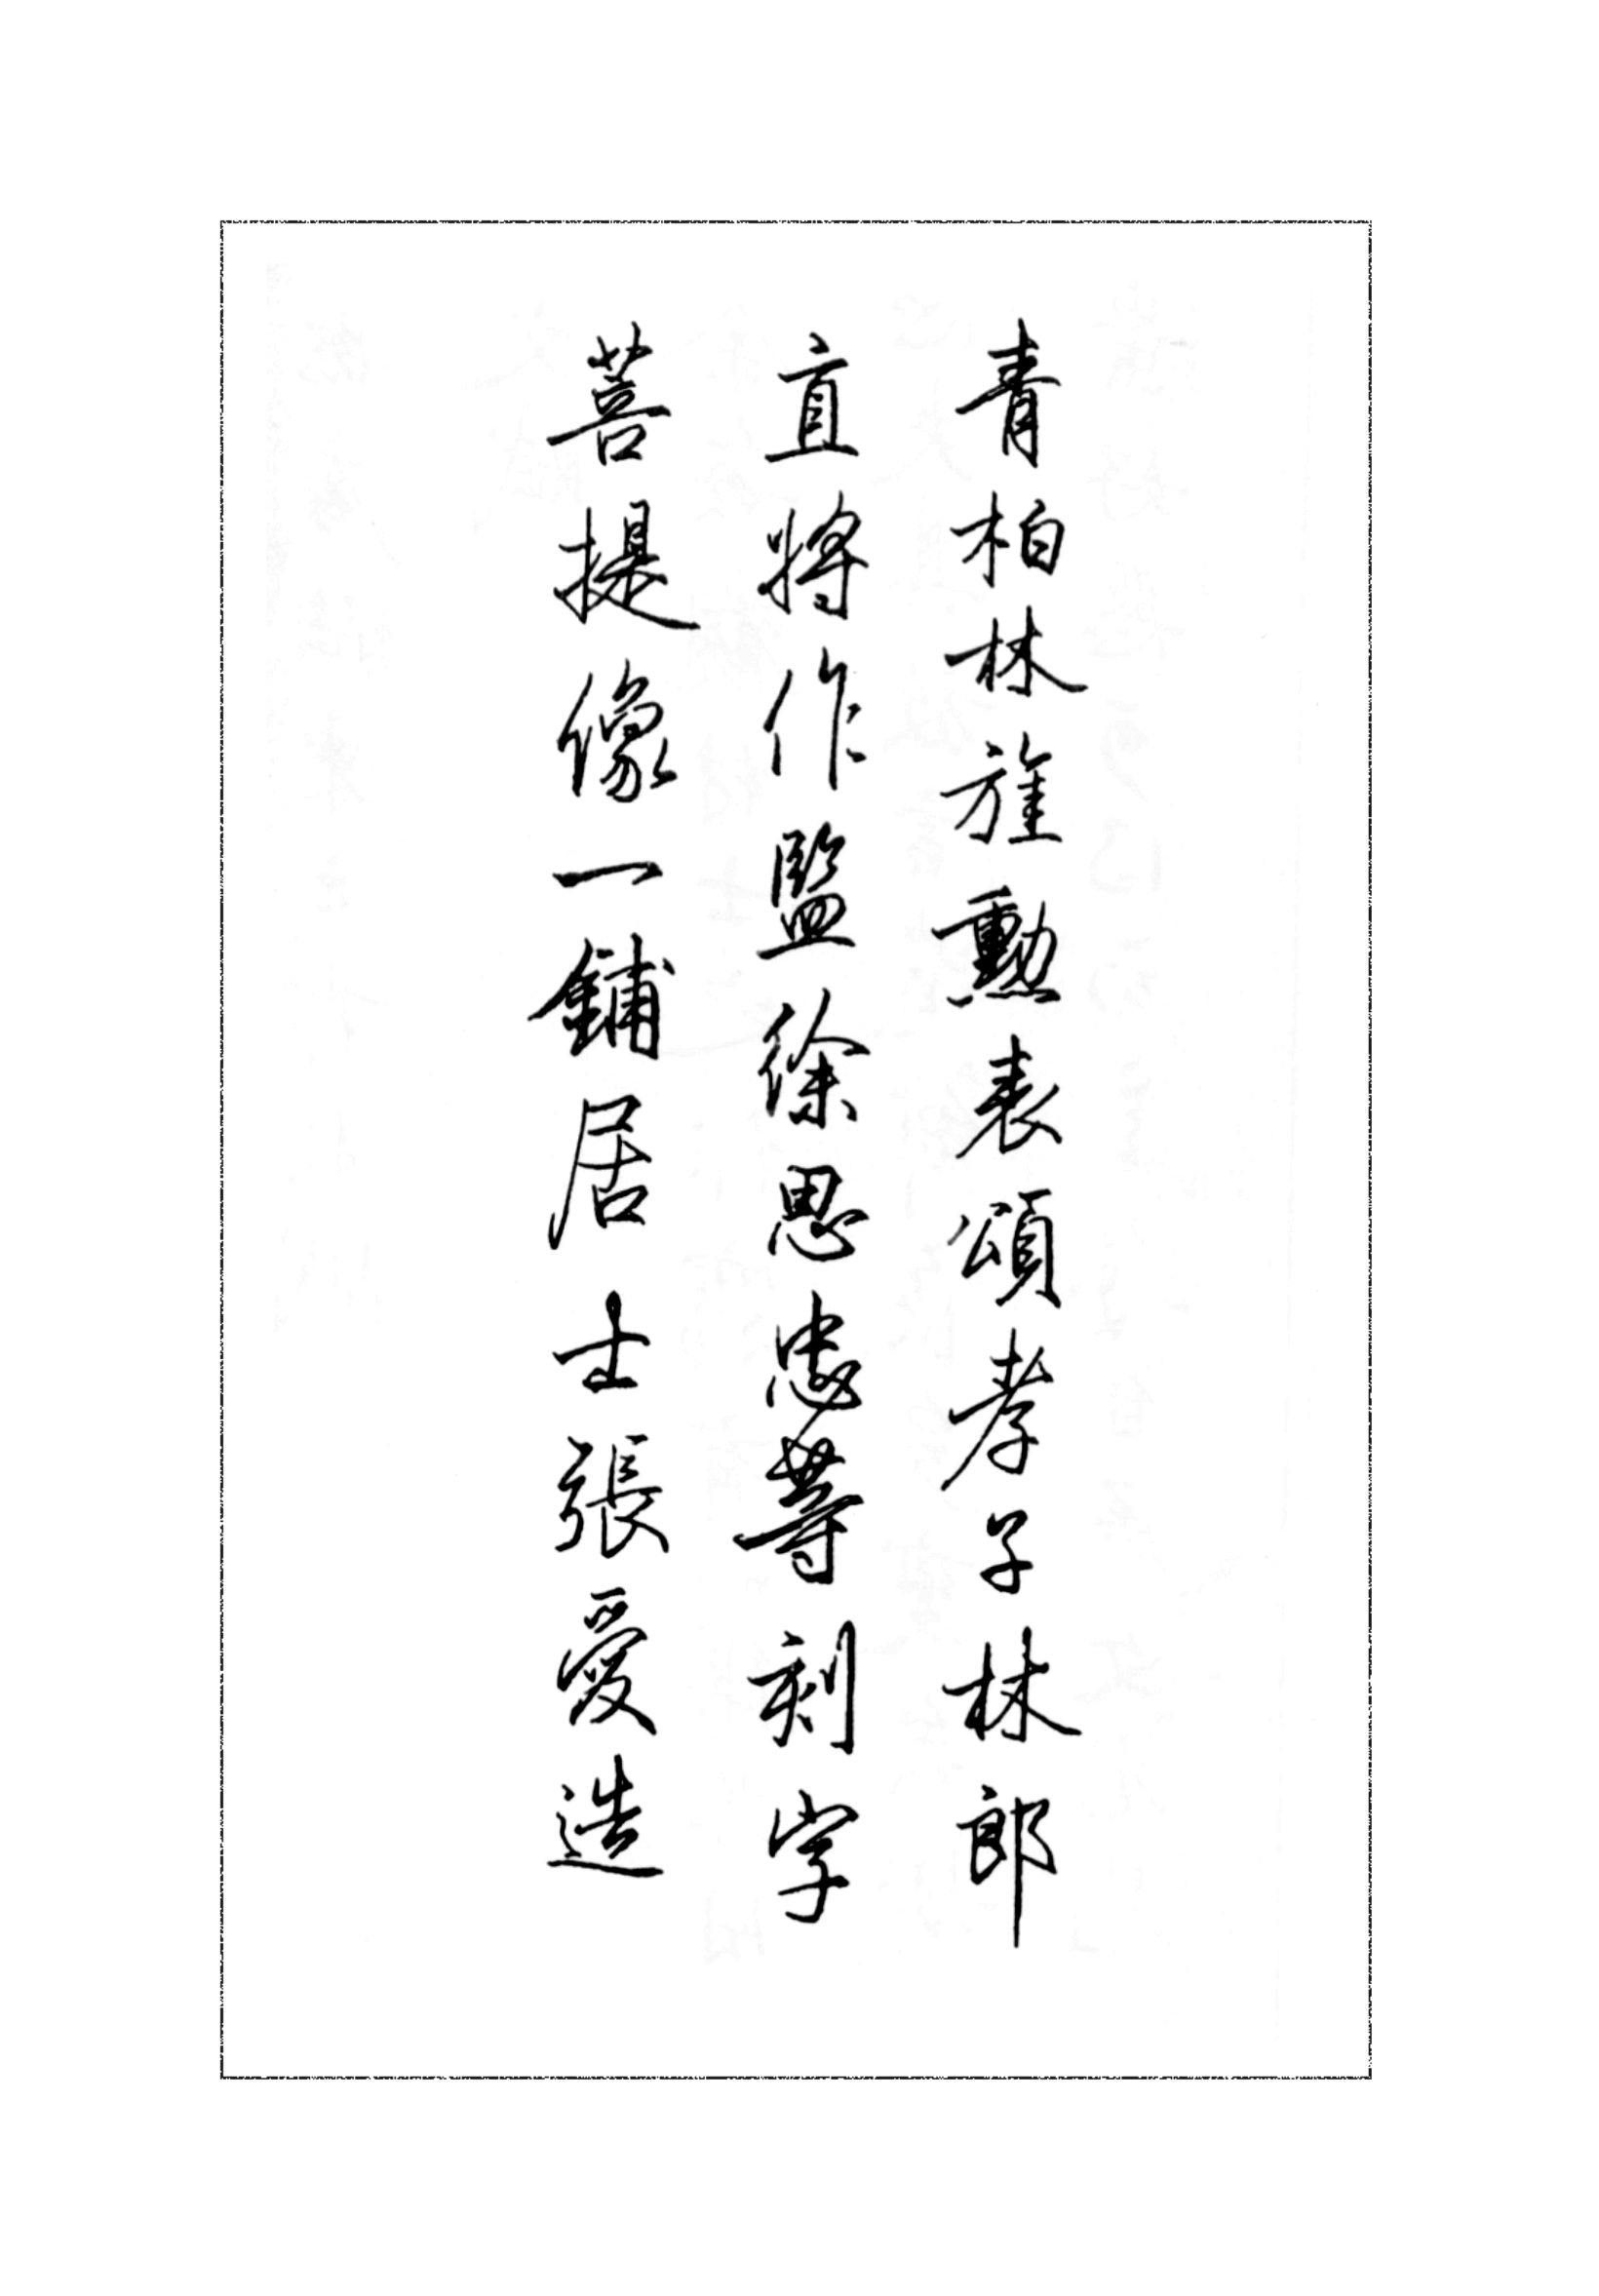 青柏林旌勳表頌孝子林郎
直將作監徐思忠等刻字
菩提像一鋪居士張愛造